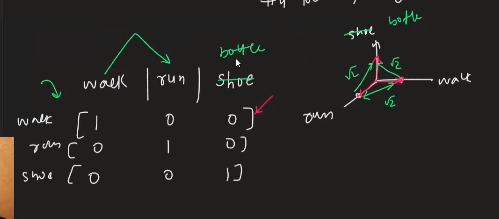 bottle
walk | run | shoe
walk [ 1 0 0 ]
run [ 0 1 0 ]
shoe [ 0 0 1 ]
shoe bottle
√2 √2
walk
√2
run